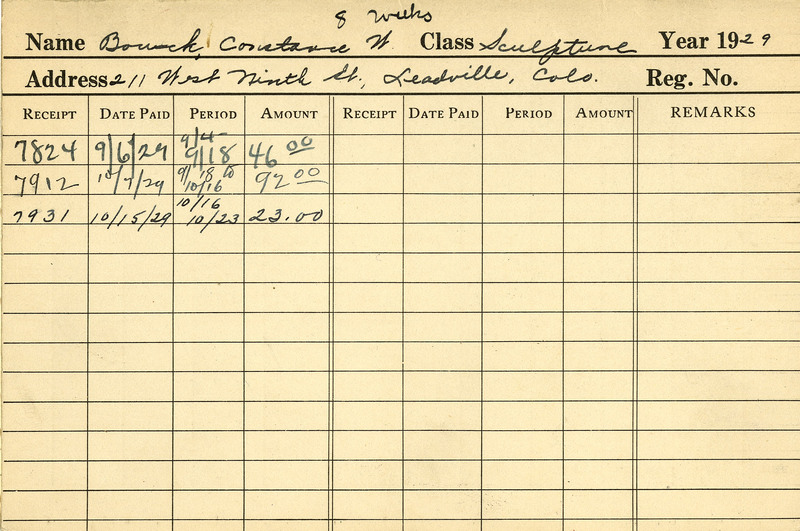 8 weeks
Name Constance W. Class Sculpture Year 1929
Address 211 West Ninth St., Leadville, Colo. Reg. No.
RECEIPT DATE PAID PERIOD AMOUNT RECEIPT DATE PAID PERIOD AMOUNT REMARKS
7824 9/6/29 9/4- 9/18 46 00
7912 10/7/29 9/18 to 10/16 92 00
7931 10/15/29 10/16 10/23 23.00